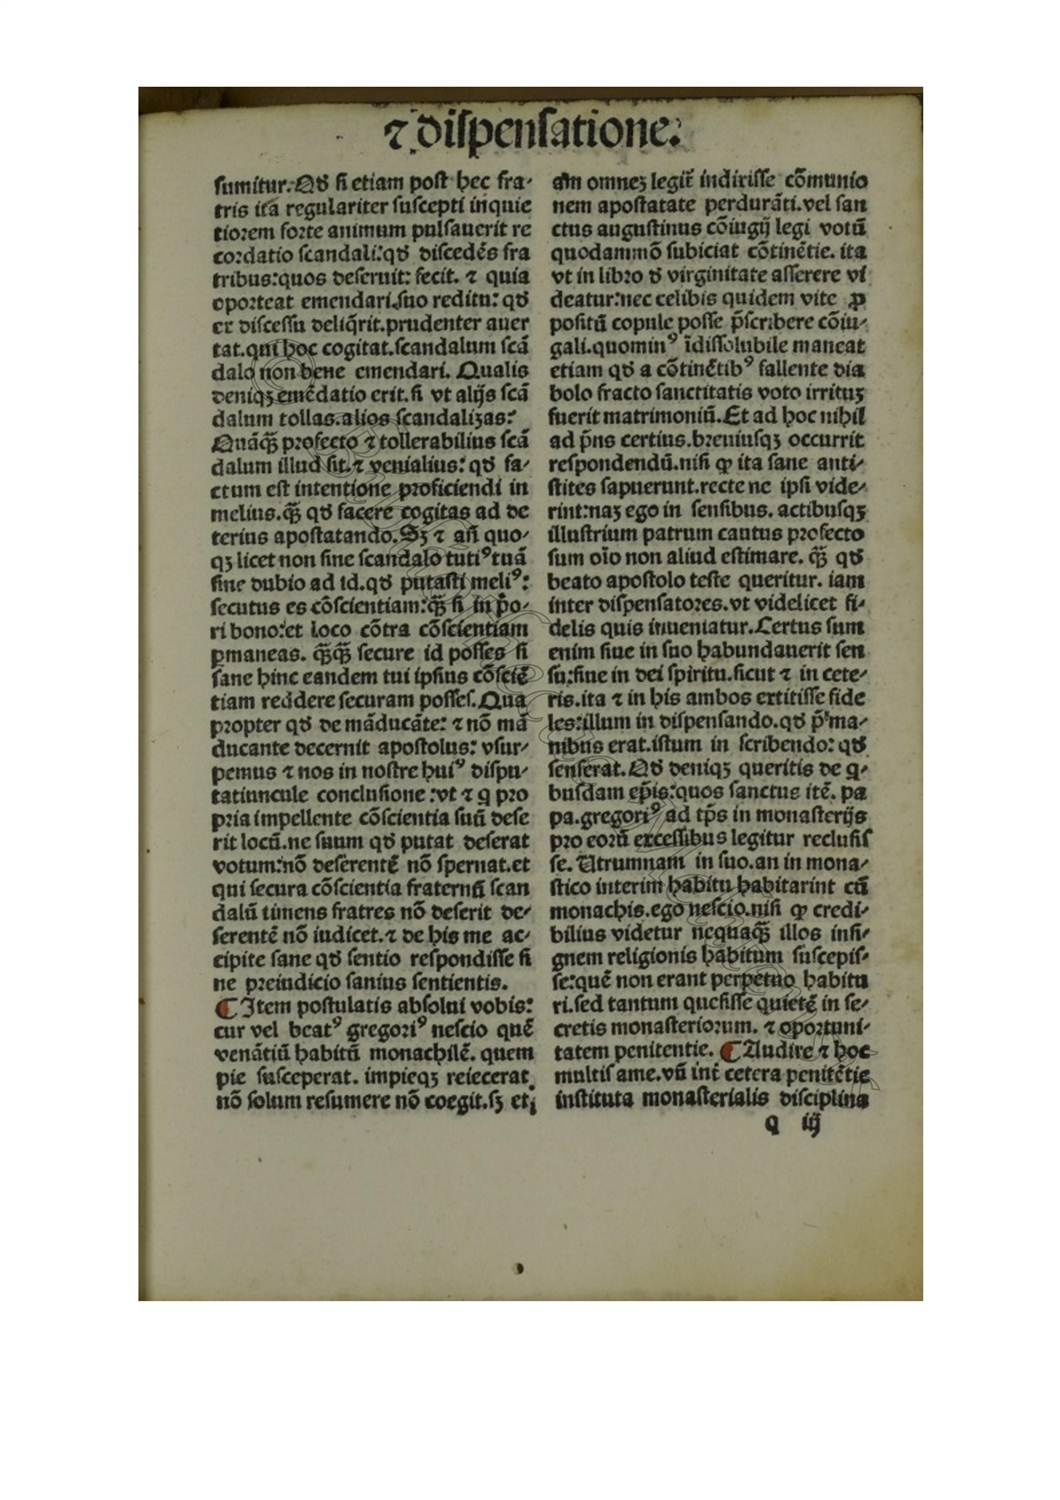 ⁊ diſpenſatione.
ſumitur. Qđ ſi etiam poſt hec fra⸗
tris ita regulariter ſuſcepti inquie
tiorem forte animum pulſauerit re
cordatio ſcandali: qđ diſcedẽs fra
tribus: quos deſeruit: fecit. ⁊ quia
oporteat emendari. ſuo reditu: qđ
ex diſceſſu deliq̃rit. prudenter auer
tat. qui hoc cogitat. ſcandalum ſcã
dalo non bene emendari. Qualis
deniqꝫ emẽdatio erit. ſi vt alijs ſcã
dalum tollas. alios ſcandaliꝫas:
Quãq̃ꝫ profecto ⁊ tollerabilius ſcã
dalum illud ſit. ⁊ venialius: qđ fa⸗
ctum eſt intentione proficiendi in
melius. q̃ꝫ qđ facere cogitas ad de
terius apoſtatando. Sꝫ ⁊ añ quo⸗
qꝫ licet non ſine ſcandalo tutiꝰ tuã
ſine dubio ad id. qđ putaſti meliꝰ:
ſecutus es cõſcientiam: q̃ꝫ ſi in p̃o⸗
ri bono: et loco cõtra cõſcientiam
ꝑmaneas. q̃ꝫq̃ꝫ ſecure id poſſes ſi
ſane hinc eandem tui ipſius cõſciẽ
tiam reddere ſecuram poſſeſ. Qua
propter qđ de mãducãte: ⁊ nõ mã
ducante decernit apoſtolus: vſur⸗
pemus ⁊ nos in noſtre huiꝰ diſpu⸗
tatiuncule concluſione: vt ⁊ q pro
pria impellente cõſcientia ſuũ deſe
rit locũ. ne ſuum qđ putat deſerat
votum: nõ deſerentẽ nõ ſpernat. et
qui ſecura cõſcientia fraternũ ſcan
dalũ timens fratres nõ deſerit de⸗
ſerentẽ nõ iudicet. ⁊ de his me ac⸗
cipite ſane qđ ſentio reſpondiſſe ſi
ne preiudicio ſanius ſentientis.
¶ Item poſtulatis abſolui vobis:
cur vel beatꝰ gregoriꝰ neſcio quẽ
venãtiũ habitũ monachilẽ. quem
pie ſuſceperat. impieqꝫ reiecerat
nõ ſolum reſumere nõ coegit. ſꝫ et
am omneꝫ legit̃ indixiſſe cõmunio
nem apoſtatate perdurãti. vel ſan
ctus auguſtinus cõiugij legi votũ
quodammõ ſubiciat cõtinẽtie. ita
vt in libro đ virginitate aſſerere vi
deatur: nec celibis quidem vite ꝓ
poſitũ copule poſſe p̃ſcribere cõiu⸗
gali. quominꝰ ĩdiſſolubile maneat
etiam qđ a cõtinẽtibꝰ fallente dia
bolo fracto ſanctitatis voto irrituꝫ
fuerit matrimoniũ. Et ad hoc nihil
ad p̃ns certius. breuiuſqꝫ occurrit
reſpondendũ. niſi ꝙ ita ſane anti⸗
ſtites ſapuerunt. recte ne ipſi vide⸗
rint: naꝫ ego in ſenſibus. actibuſqꝫ
illuſtrium patrum cautus profecto
ſum oĩo non aliud eſtimare. q̃ꝫ qđ
beato apoſtolo teſte queritur. iam
inter diſpenſatores. vt videlicet fi⸗
delis quis inueniatur. Certus ſum
enim ſiue in ſuo habundauerit ſen
ſu: ſiue in dei ſpiritu. ſicut ⁊ in cete⸗
ris. ita ⁊ in his ambos extitiſſe fide
les: illum in diſpenſando. qđ p̃ ma⸗
nibus erat. iſtum in ſcribendo: qđ
ſenſerat. Qđ deniqꝫ queritis de q⸗
buſdam ep̃is: quos ſanctus itẽ. pa
pa. gregoriꝰ ad tp̃s in monaſterijs
pro eorũ exceſſibus legitur recluſiſ
ſe. Utrumnam in ſuo. an in mona⸗
ſtico interim habitu habitarint cũ
monachis. ego neſcio. niſi ꝙ credi⸗
bilius videtur nequaq̃ꝫ illos inſi⸗
gnem religionis habitum ſuſcepiſ⸗
ſe: quẽ non erant perpetuo habitu
ri. ſed tantum queſiſſe quietẽ in ſe⸗
cretis monaſteriorum. ⁊ oportuni⸗
tatem penitentie. ¶ Audire ⁊ hoc
multiſ a me. vñ int̃ cetera penitẽtie
inſtituta monaſterialis diſciplina
q iij